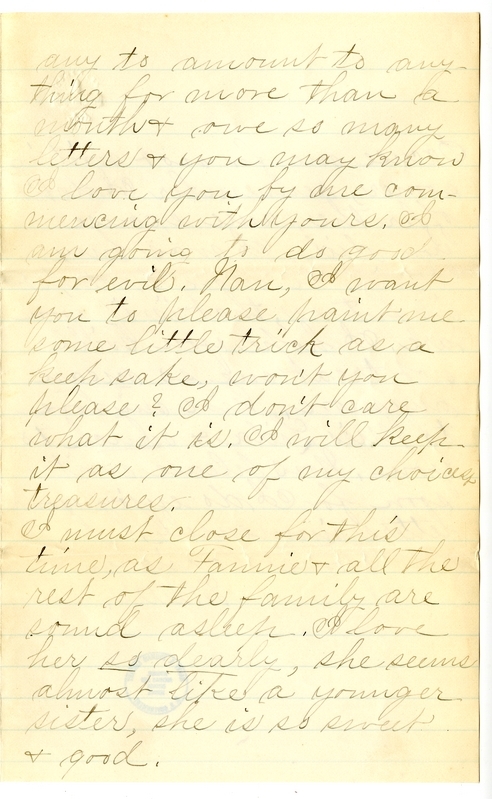 any to amount to any-
thing for more than a
month & owe so many
letters & you may know
I love you by me com-
mencing with yours. I
am going to do good
for evil. Nan, I want
you to please paint me
some little trick as a
keep sake, won't you
please? I don't care
what it is. I will keep
it as one of my choicest
treasures.
I must close for this
time, as Fannie & all the
rest of the family are
sound asleep. I love
her so dearly, she seems
almost like a younger
sister, she is so sweet
& good.